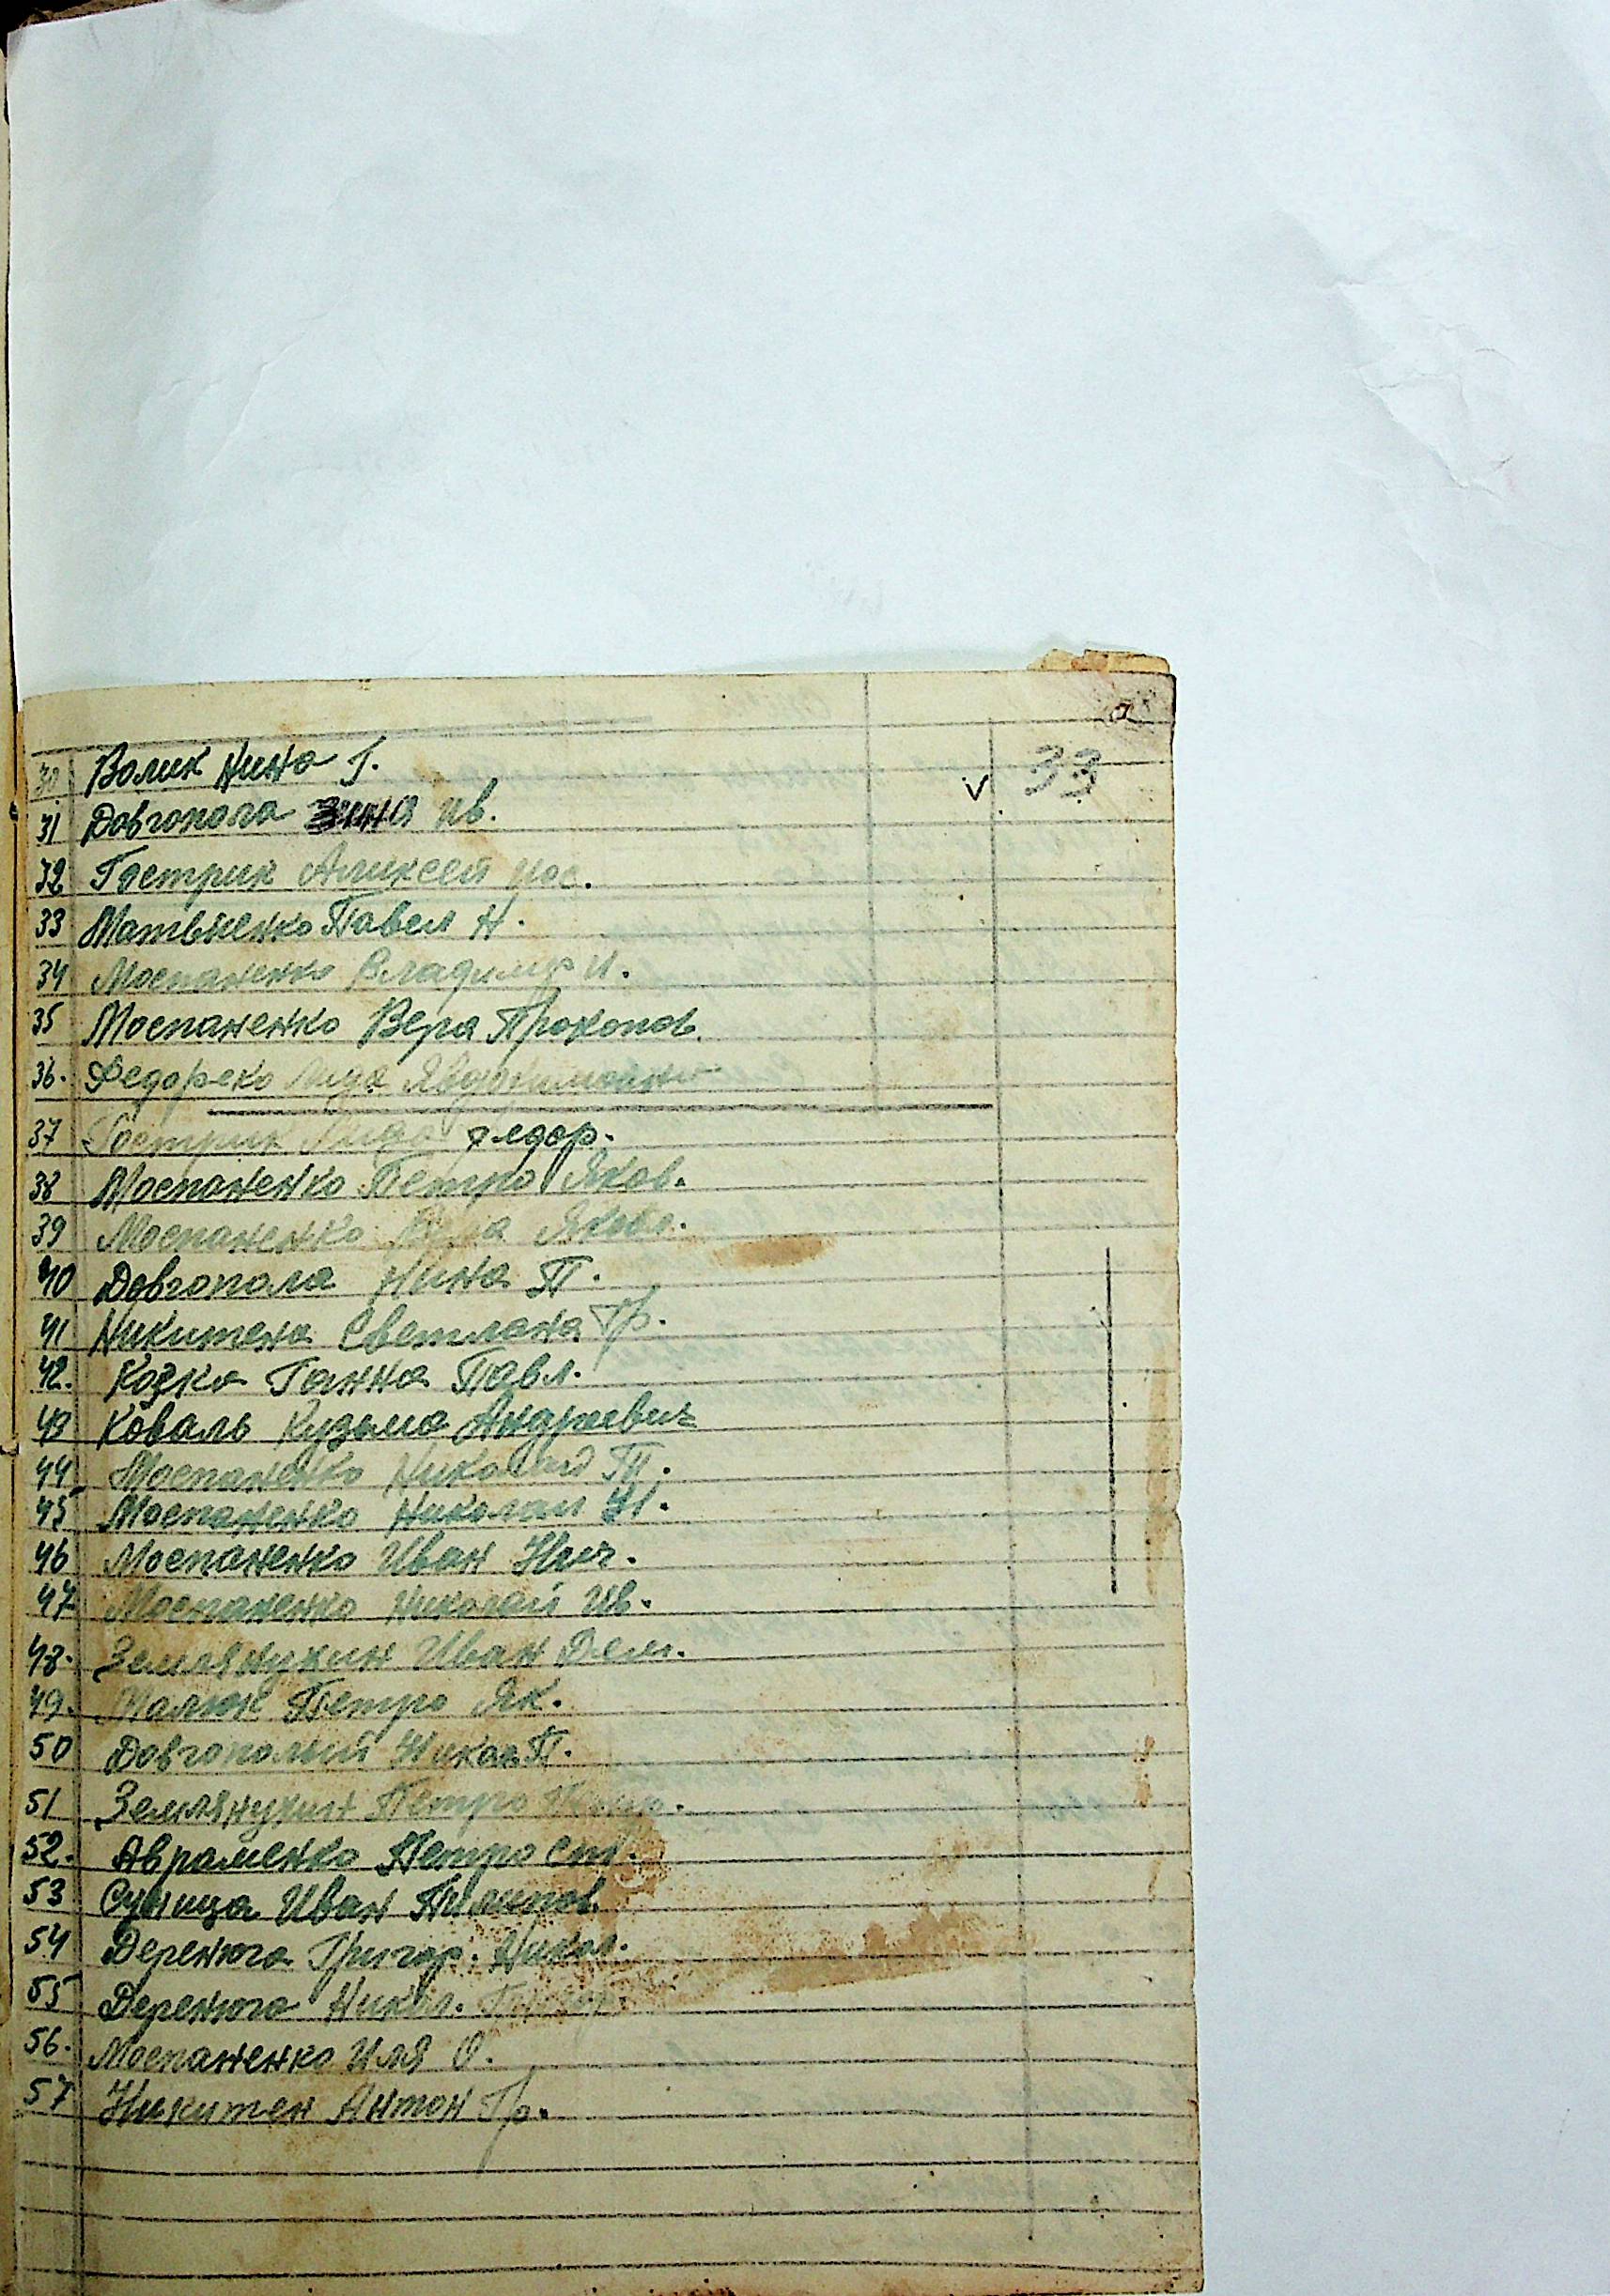 33
30 Волик Нина Г. v
31 Довгопола Зина Ив.
32 Гострик Аликсей
33 Матвиенко Павел Н.
34 Моспаненко Владимир И.
35 Моспаненко Вера Прокопов.
36. Федореко Лида
37 Гострик Лида Федор.
38 Моспаненко Петро Яков.
39 Моспаненко Яковл.
40 Довгопола Нина П.
41 Никитена Светлана Гр.
42. Козка Ганна Павл.
43 Коваль Кузьма Андреевич
44 Моспаненко Николай П.
45 Моспаненко Николай И.
46 Моспаненко Иван Ник.
47 Моспаненко Николай Ив.
48. Землянухин Иван Дем.
49. Малюк Петро Як.
50 Довгополый Никол П.
51 Землянухин Петро
52. Авраменко Петро Ст.
53 Суница Иван Пилипов.
54 Деренюга Григор. Никол.
55 Деренюга Никол. Григор.
56. Моспаненко Иля О.
57 Никитен Антон Гр.